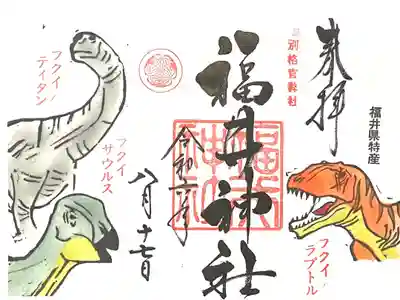 奉拝
福井県特産
別格官幣社
福井神社
令和六年
八月十七日
フクイラプトル
フクイサウルス
フクイティタン